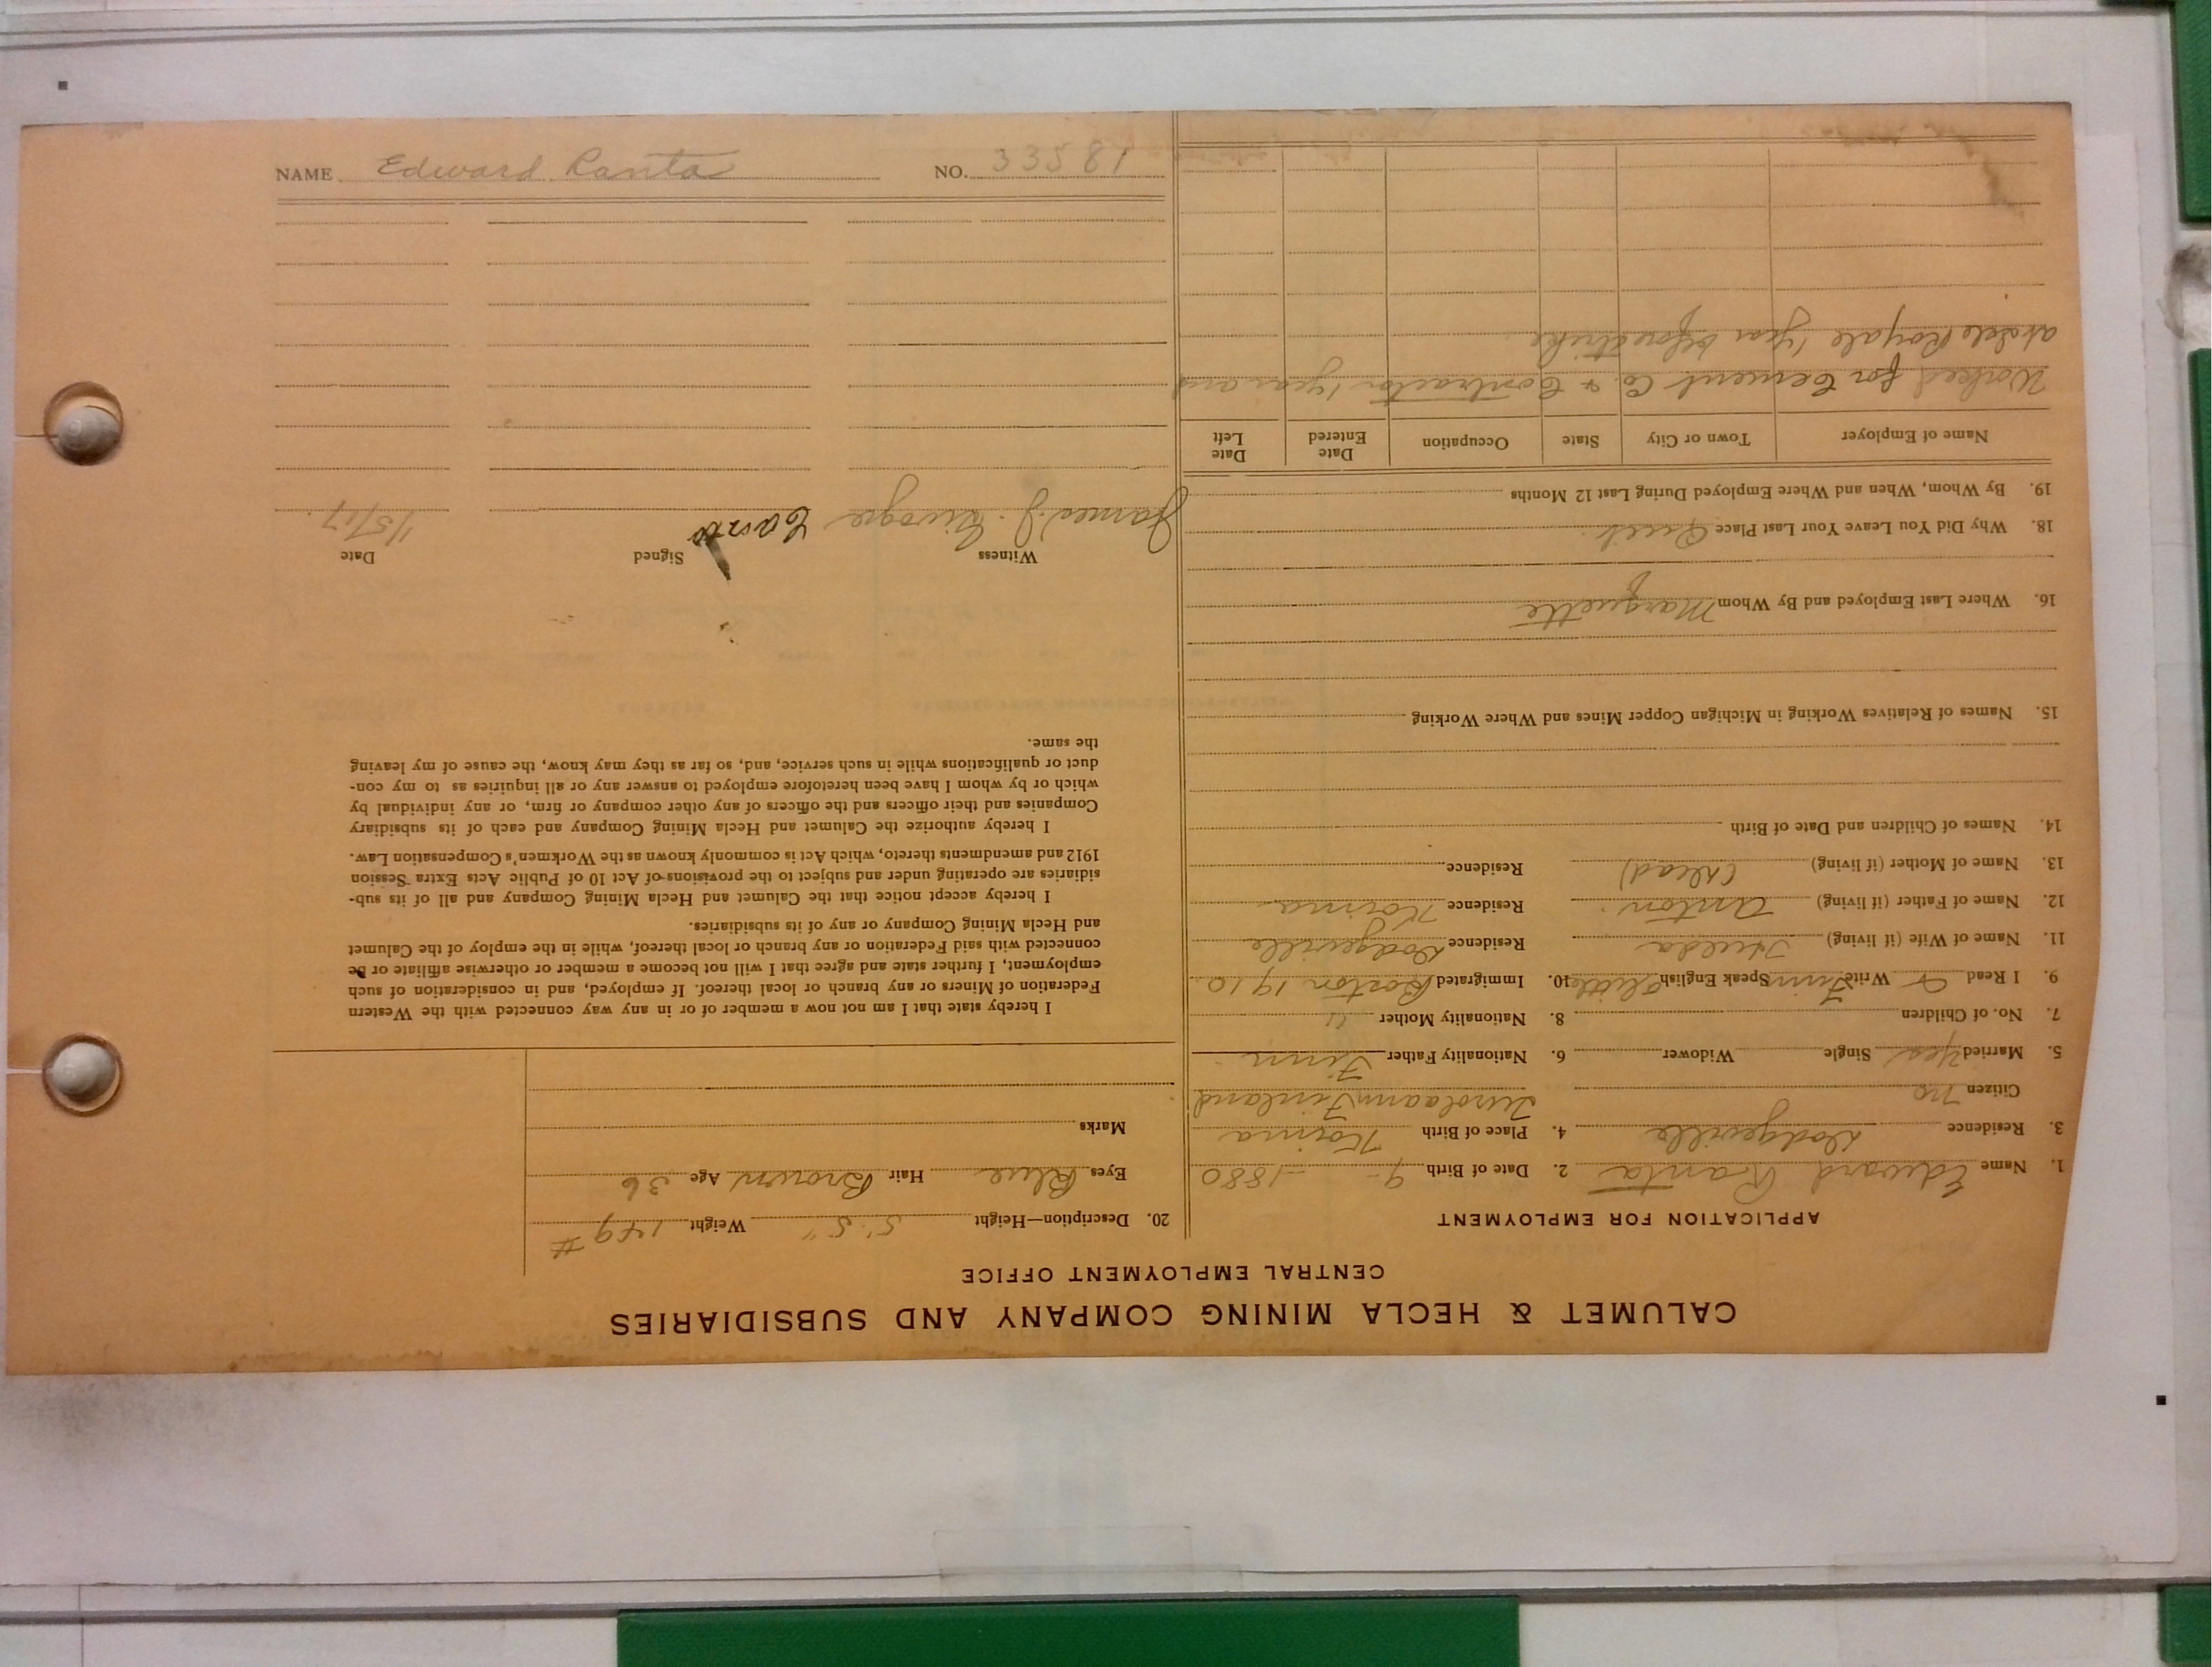 CALUMET & HECLA MINING COMPANY AND SUBSIDIARIES
CENTRAL EMPLOYMENT OFFICE
APPLICATION FOR EMPLOYMENT
1. Name Edward Ranta 2. Date of Birth 9 - - 1880
3. Residence Dodgeville 4. Place of Birth Karina
Citizen no Finland
5. Married Yes Single Widower 6. Nationality Father Finn
7. No. of Children 8. Nationality Mother "
9. I Read & Write Finn Speak English little 10. Immigrated Boston 1910.
11. Name of Wife (if living) Hulda Residence Dodgeville
12. Name of Father (if living) Anton. Residence
13. Name of Mother (if living) (dead) Residence
14. Names of Children and Date of Birth
15. Names of Relatives Working in Michigan Copper Mines and Where Working
16. Where Last Employed and By Whom Marquette
18. Why Did You Leave Your Last Place Quit.
19. By Whom, When and Where Employed During Last 12 Months
Name of Employer Town or City State Occupation Date Entered Date Left
Worked for Cement Co. & Contractor 1 year and
at Isle Royale 1 year before strike
20. Description—Height 5' 5" Weight 149 #
Eyes Blue Hair Brown Age 36
Marks
I hereby state that I am not now a member of or in any way connected with the Western
Federation of Miners or any branch or local thereof. If employed, and in consideration of such
employment, I further state and agree that I will not become a member or otherwise affiliate or be
connected with said Federation or any branch or local thereof, while in the employ of the Calumet
and Hecla Mining Company or any of its subsidiaries.
I hereby accept notice that the Calumet and Hecla Mining Company and all of its sub-
sidiaries are operating under and subject to the provisions of Act 10 of Public Acts Extra Session
1912 and amendments thereto, which Act is commonly known as the Workmen's Compensation Law.
I hereby authorize the Calumet and Hecla Mining Company and each of its subsidiary
Companies and their officers and the officers of any other company or firm, or any individual by
which or by whom I have been heretofore employed to answer any or all inquiries as to my con-
duct or qualifications while in such service, and, so far as they may know, the cause of my leaving
the same.
Witness Signed Date
James J. 1/5/17.
NAME Edward Ranta NO. 33581